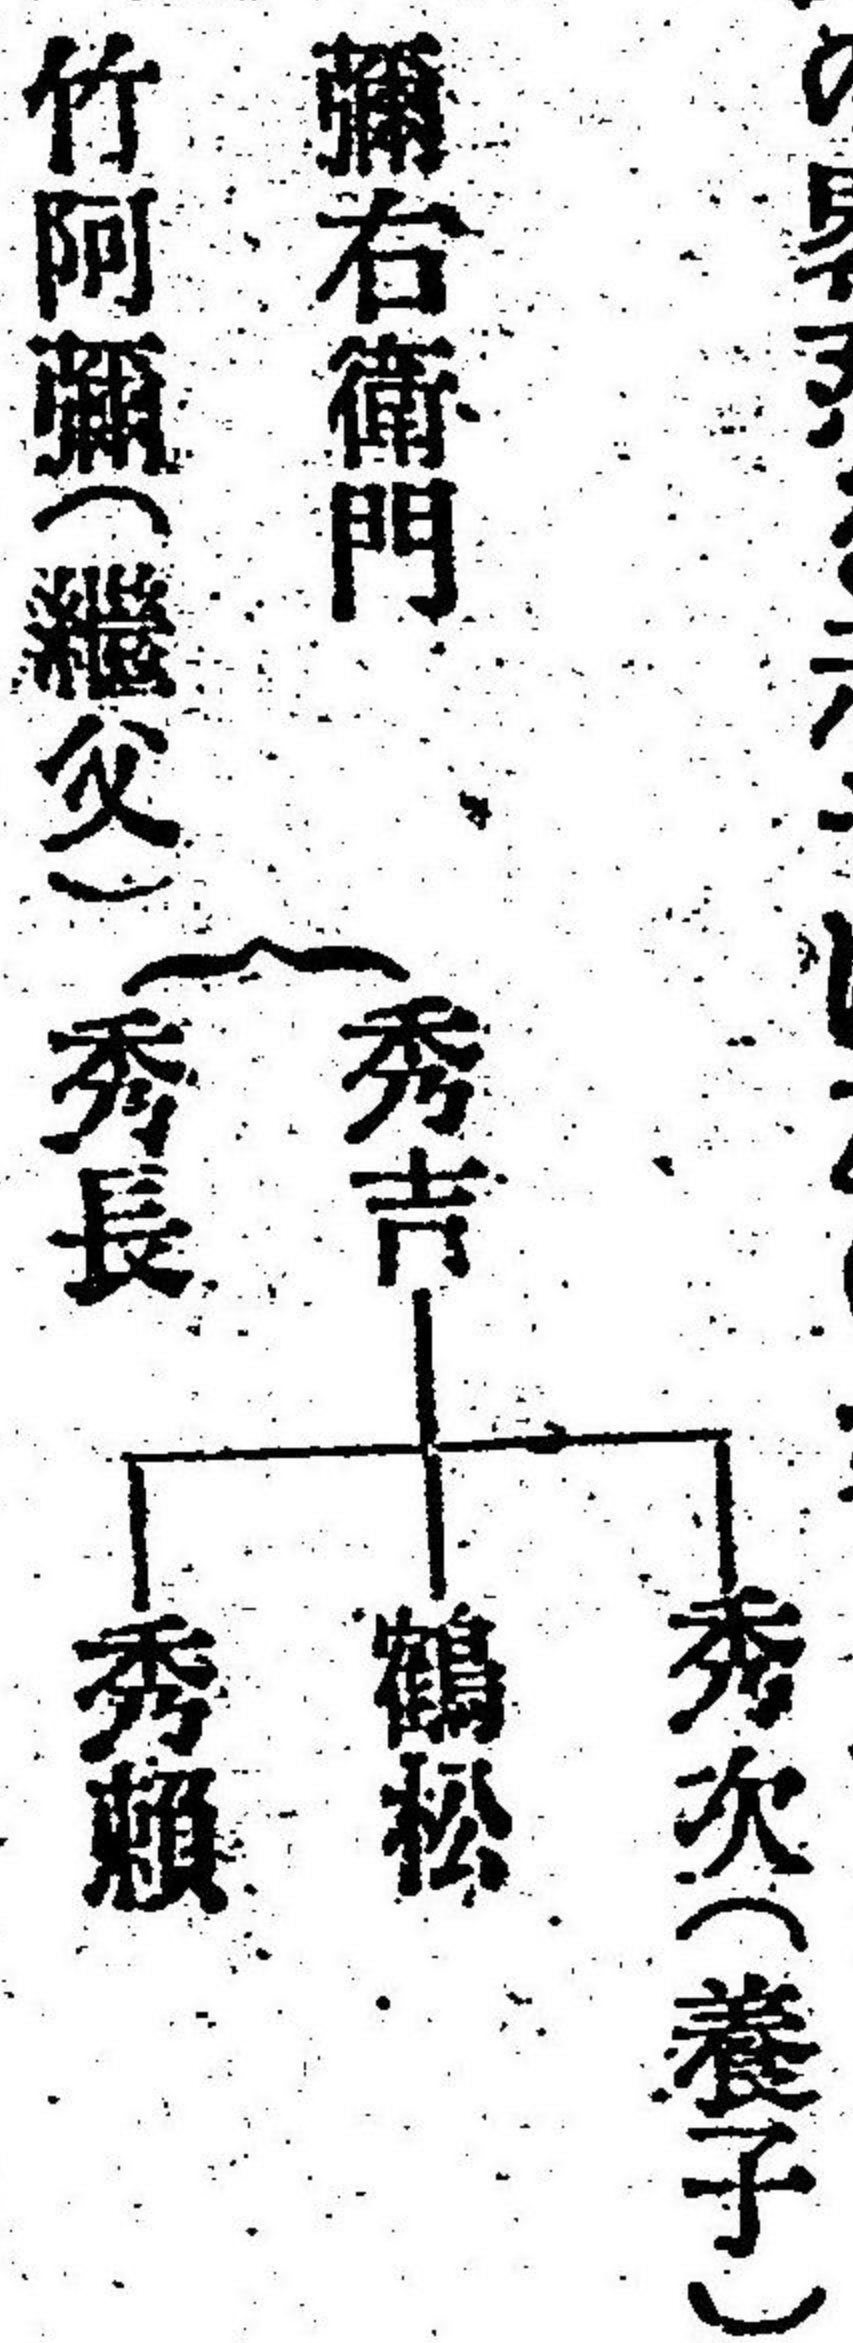 彌右衛門
竹阿彌(繼父)
秀吉
秀長
秀次(養子)
鶴松
秀頼